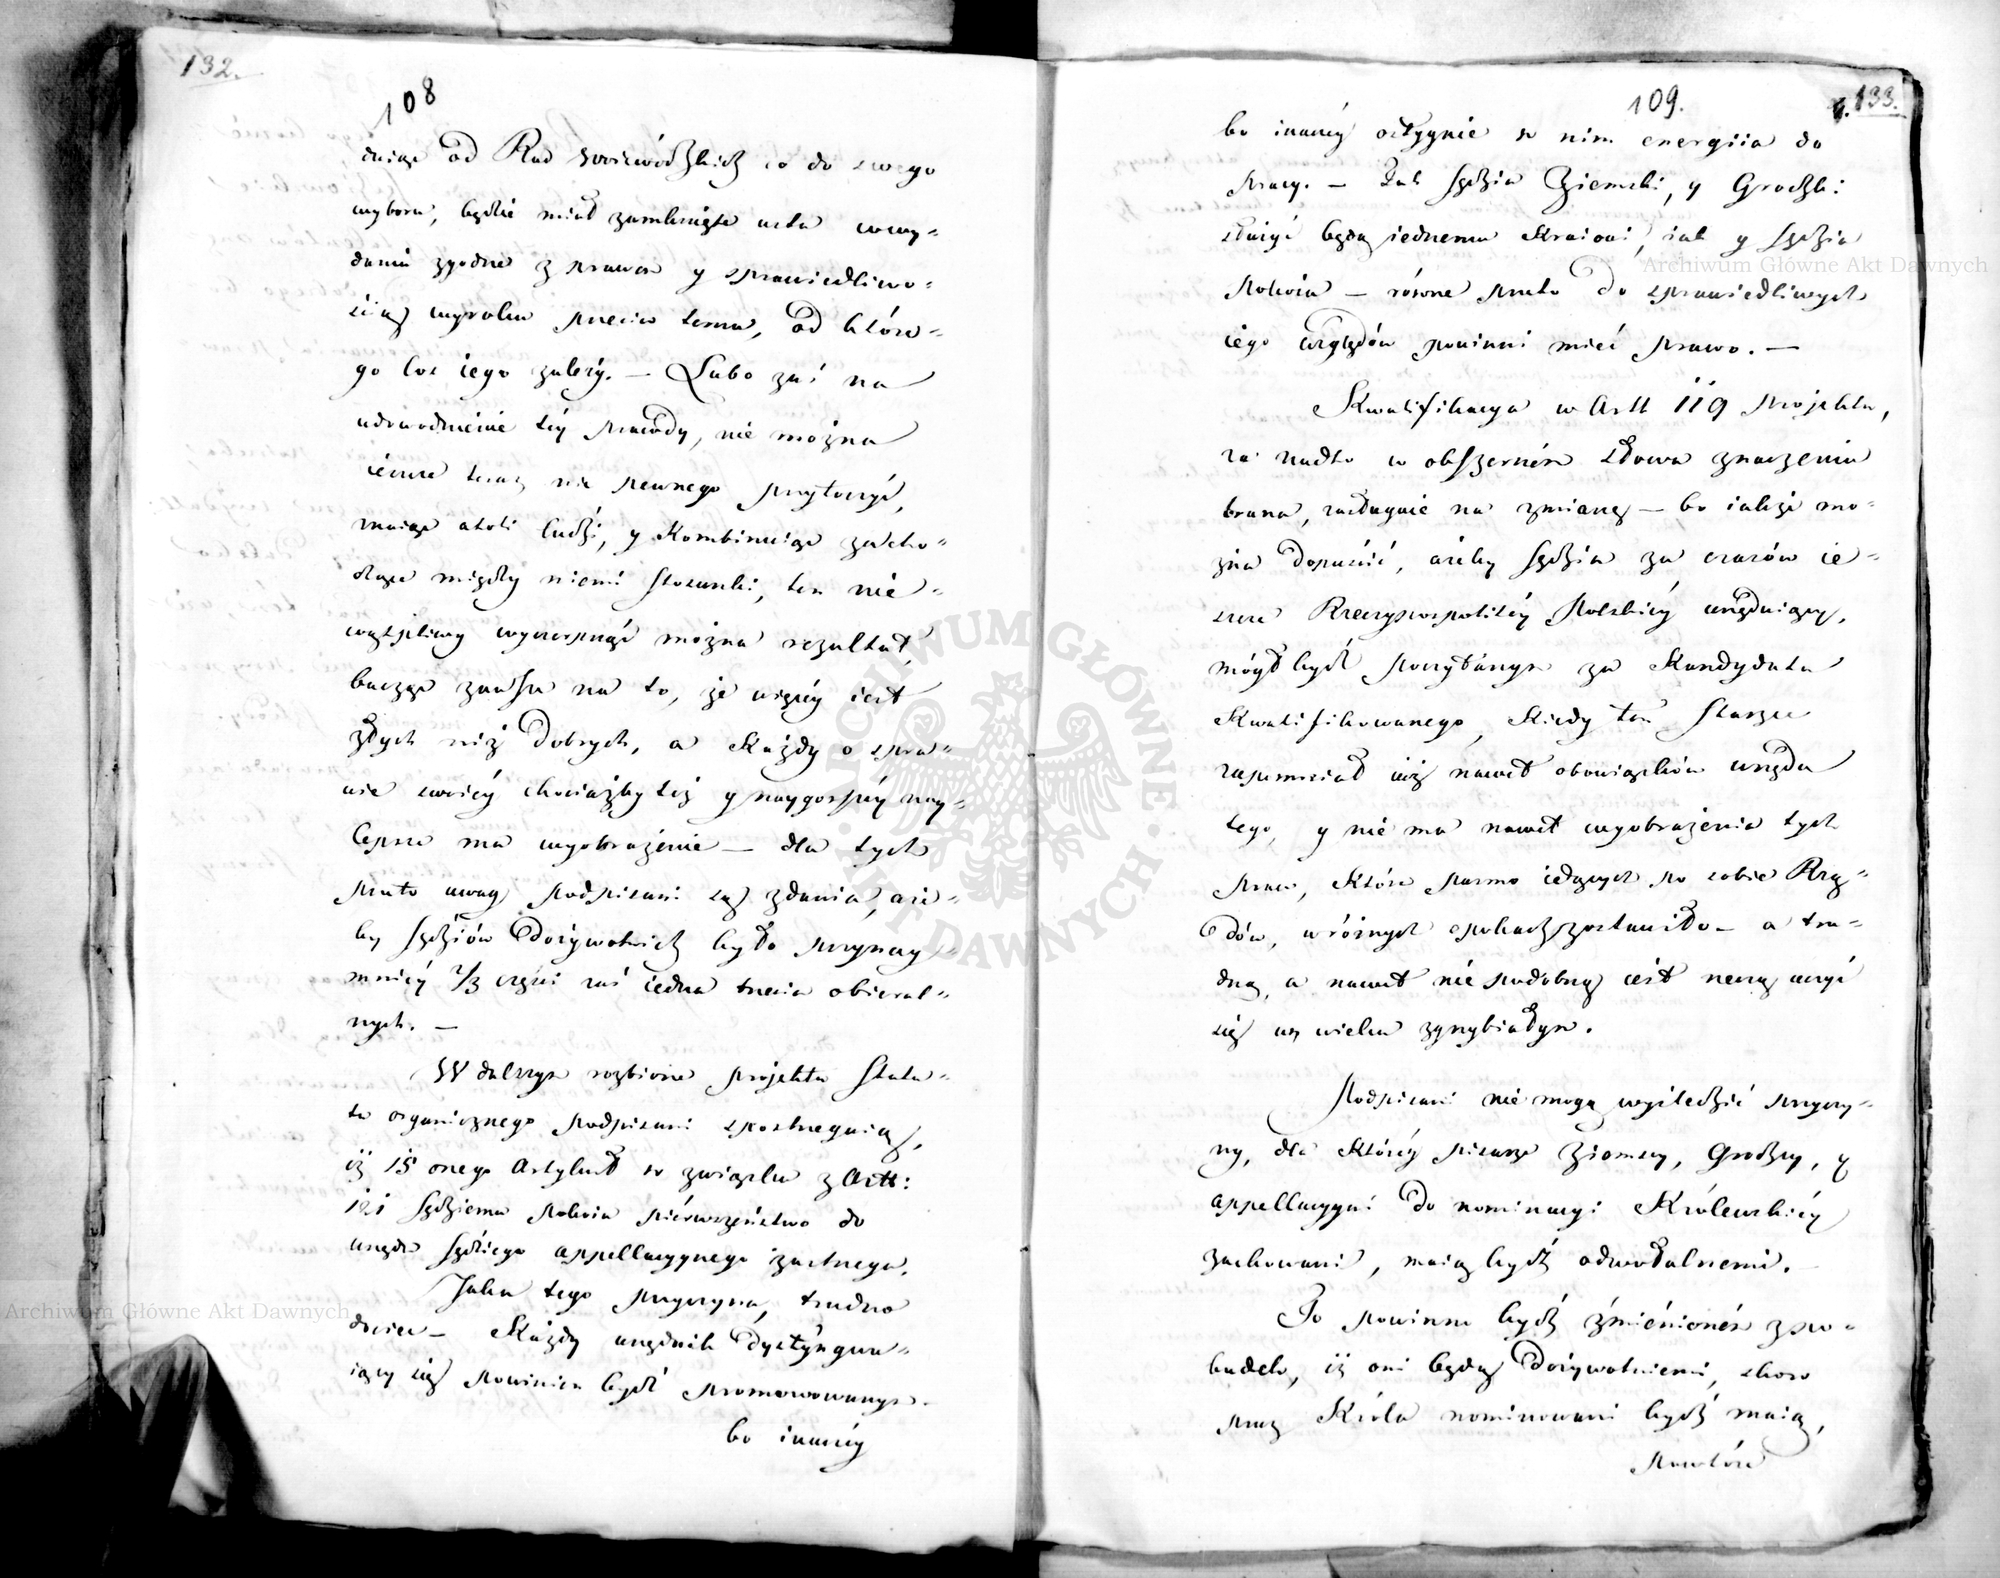 132.
108
dując od Rad Woiewódzkich co do swego
wyboru, będzie miał zamknięte usta w wy-
daniu zgodne z prawem y sprawiedliwo-
ścią wyroku przeciw temu, od które-
go los iego zależy. — Lubo zaś na
udowodnienie téy prawdy, nie można
ieszcze teraz nic pewnego przytoczyć,
znaiąc atoli ludzi, y kombinuiąc zacho-
dzące między niemi stosunki, ten nie-
wątpliwy wyczerpnąć można rezultat,
bacząc zawsze na to, że więcéy iest
złych niż dobrych, a każdy o spra-
wie swoiéy chociażby téż y naygorszéy nay-
lepsze ma wyobrażenie — dla tych
przeto uwag podpisani są zdania, aże-
by sędziów dożywotnich było przynay-
mniéy 2/3 części zaś iedna trzecia obieral-
nych. —
W dalszym rozbiorze projektu statu-
tu organicznego podpisani spostrzegaią,
iż 15 onego artykuł w związku z Artt:
121 sędziemu pokoiu pierwszeństwo do
urzędu sędziego appellacyynego zastrzega.
Jaka tego przyczyna, trudno
dociec — każdy urzędnik dystyngwu-
iący się powinien bydź promowowanym.
bo inaczéy
109.
133.
bo inaczéy ostygnie w nim energiia do
pracy. — Jak sędzia Ziemski, y Grodzki
służyć będą iednemu kraiowi, tak y sędzia
pokoiu — równe przeto do sprawiedliwych
iego względów powinni mieć prawo. —
Kwalifikacya w Artt 119 projektu,
za nadto w obszerném słowa znaczeniu
brana, zasługuie na zmianę — bo iakże mo-
żna dopuścić, ażeby sędzia za czasów ie-
szcze Rzeczypospolitéy Polskiéy urzęduiący,
mógł bydź poczytanym za kandydata
kwalifikowanego, kiedy ten starzec
zapomniał iuż nawet obowiązków urzędu
tego, y nie ma nawet wyobrażenia tych
praw, które pasmo idących po sobie Rzą-
dów, w różnych epokach zostawiło — a tru-
dną, a nawet nie podobną iest rzeczą uczyć
się w wieku zgrzybiałym.
Podpisani nie mogą wyśledzić przyczy-
ny, dla któréy pisarze Ziemscy, Grodzcy, y
appellacyyni do nominacyi Królewskiéy
zachowani, maią bydź odwołalnemi.
To powinno bydź zmienioném z po-
budek, iż oni będą dożywotniemi, skoro
przez Króla nominowani bydź maią,
powtóre